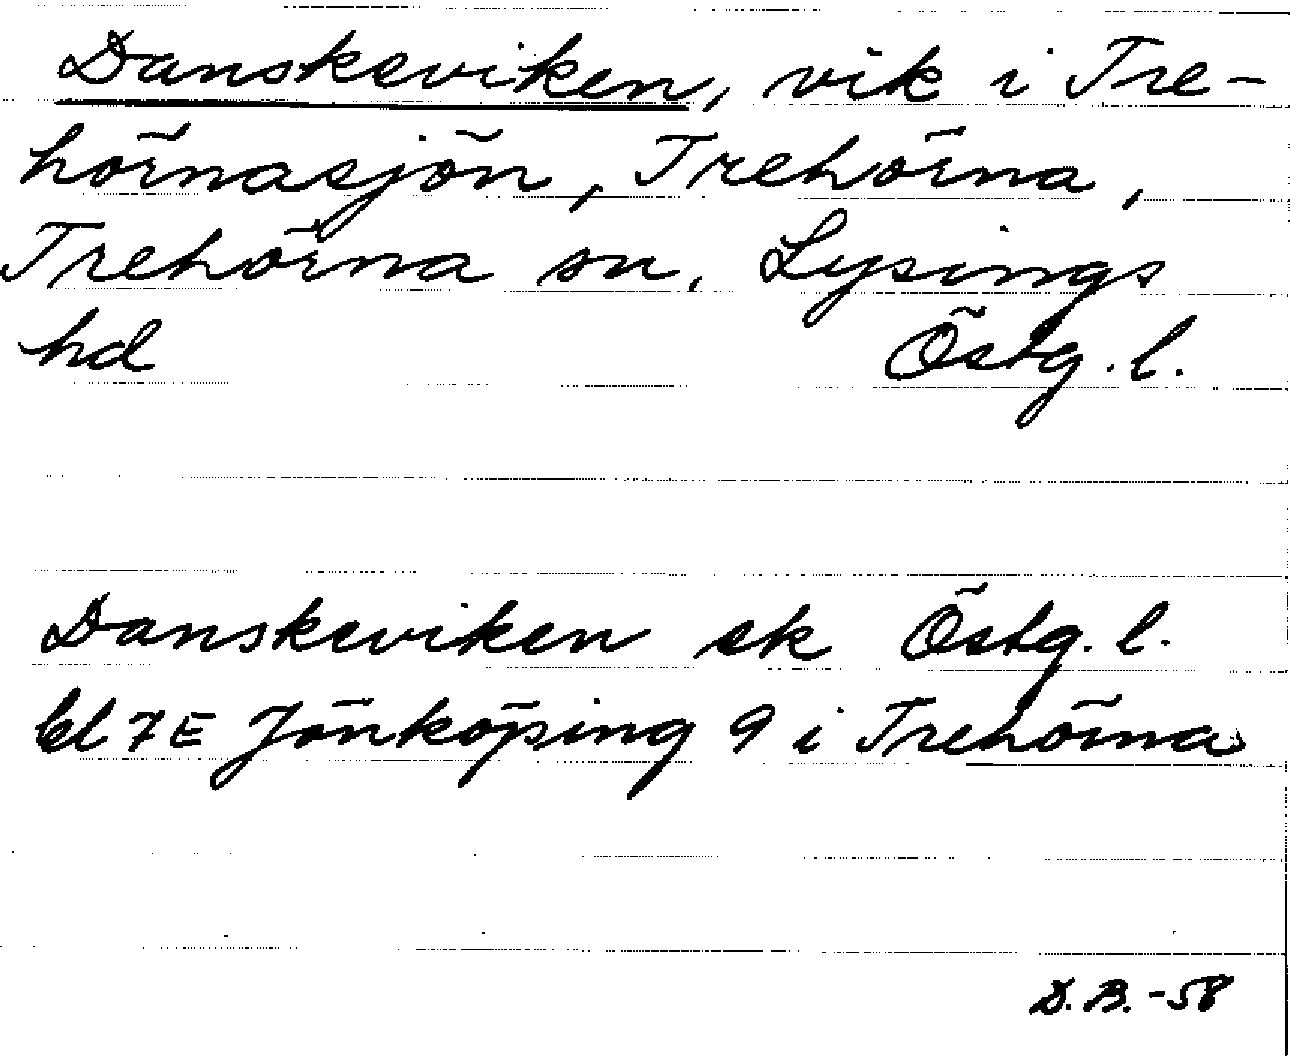 Danskeviken, vik i Tre-
hörnasjön, Trehörna,
Trehörna sn. Lysings
hd Östg. l.
Danskeviken ek Östg. l.
bl 7E Jönköping 9 i Trehörna
D.B. -58